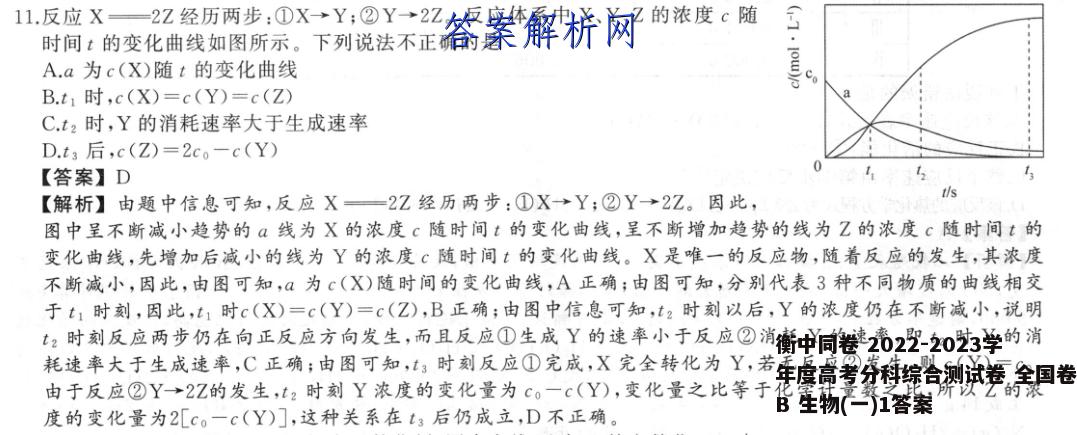 11.反应 X══2Z 经历两步:①X→Y;②Y→2Z。反应体系中 X、Y、Z 的浓度 c 随
时间 t 的变化曲线如图所示。下列说法不正确的是
答案解析网
A.a 为 c(X)随 t 的变化曲线
B.t₁ 时,c(X)=c(Y)=c(Z)
C.t₂ 时,Y 的消耗速率大于生成速率
D.t₃ 后,c(Z)=2c₀-c(Y)
c/(mol·L⁻¹)
c₀
a
0
t₁
t₂
t₃
t/s
【答案】D
【解析】由题中信息可知,反应 X══2Z 经历两步:①X→Y;②Y→2Z。因此,
图中呈不断减小趋势的 a 线为 X 的浓度 c 随时间 t 的变化曲线,呈不断增加趋势的线为 Z 的浓度 c 随时间 t 的
变化曲线,先增加后减小的线为 Y 的浓度 c 随时间 t 的变化曲线。X 是唯一的反应物,随着反应的发生,其浓度
不断减小,因此,由图可知,a 为 c(X)随时间的变化曲线,A 正确;由图可知,分别代表 3 种不同物质的曲线相交
于 t₁ 时刻,因此,t₁ 时c(X)=c(Y)=c(Z),B 正确;由图中信息可知,t₂ 时刻以后,Y 的浓度仍在不断减小,说明
t₂ 时刻反应两步仍在向正反应方向发生,而且反应①生成 Y 的速率小于反应②消耗 Y 的速率,即 时 Y 的消
耗速率大于生成速率,C 正确;由图可知,t₃ 时刻反应①完成,X 完全转化为 Y,若无反应②发生,则 c(Y)=c₀
由于反应②Y→2Z的发生,t₂ 时刻 Y 浓度的变化量为 c₀-c(Y),变化量之比等于化学计量数之比,所以 Z 的浓
度的变化量为2[c₀-c(Y)],这种关系在 t₃ 后仍成立,D 不正确。
衡中同卷 2022-2023学
年度高考分科综合测试卷 全国卷
B 生物(一)1答案